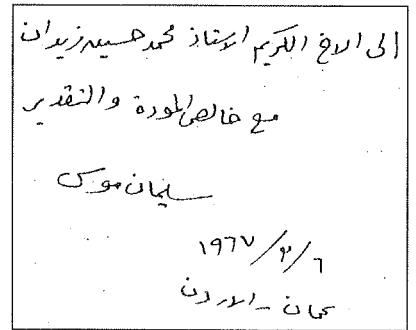 إلى الاخ الكريم الاستاذ محمد حسين زيدان
مع خالص المودة والتقدير
سليمان موسى
٦/٣/١٩٦٧
عمان - الاردن